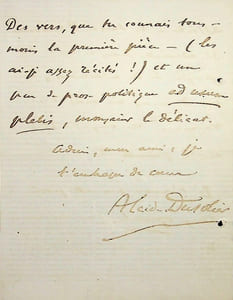 Des vers, que tu connais tous —
moins la première pièce — (les
ai-je assez récités !) et un
peu de prose politique ad usum
plebis, monsieur le délicat.
Adieu, mon ami ; je
t'embrasse de cœur
Alcide Dusolier